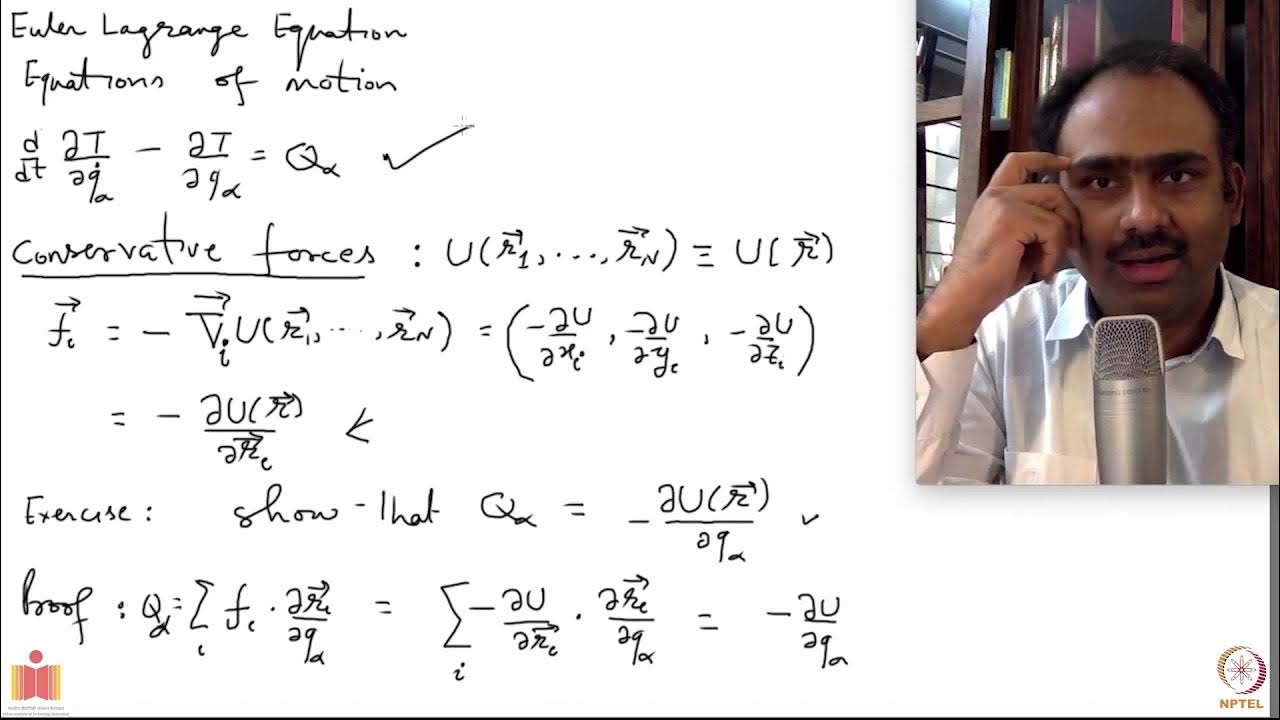 Euler Lagrange Equation
Equations of motion
d/dt ∂T/∂q̇_α − ∂T/∂q_α = Q_α ✓
Conservative forces : U(r⃗_1, ..., r⃗_N) ≡ U(r⃗)
f⃗_i = − ∇⃗_i U(r⃗_1, ..., r⃗_N) = (−∂U/∂x_i , −∂U/∂y_i , −∂U/∂z_i)
= − ∂U(r⃗)/∂r⃗_i <
Exercise : show - that Q_α = − ∂U(r⃗)/∂q_α ✓
Proof : Q_α = Σ_i f_i · ∂r⃗_i/∂q_α = Σ_i −∂U/∂r⃗_i · ∂r⃗_i/∂q_α = −∂U/∂q_α
NPTEL